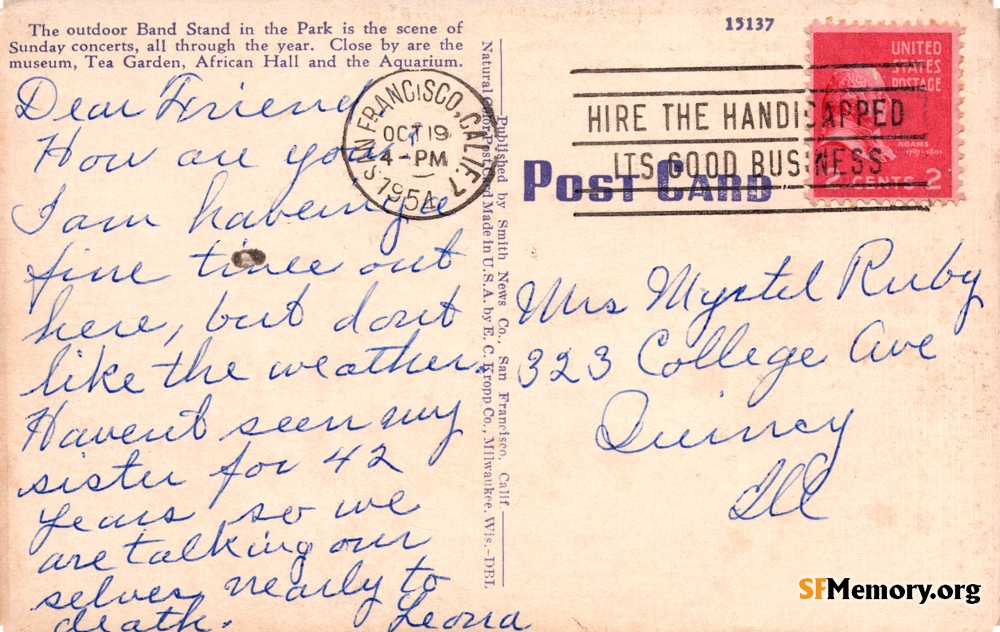 The outdoor Band Stand in the Park is the scene of
Sunday concerts, all through the year. Close by are the
museum, Tea Garden, African Hall and the Aquarium.
Dear Friend
How are you?
I am haveing a
fine time out
here, but dont
like the weather.
Havent seen my
sister for 42
years so we
are talking our
selves nearly to
death. Leona
SAN FRANCISCO, CALIF. 7
OCT 19
4 - PM
1954
Published by Smith News Co., San Francisco, Calif.
Natural Color Post Card Made in U.S.A. by E. C. Kropp Co., Milwaukee, Wis.-DBL
15137
HIRE THE HANDICAPPED
ITS GOOD BUSINESS
POST CARD
UNITED
STATES
POSTAGE
ADAMS
1797-1801
2 CENTS 2
Mrs Myrtel Ruby
323 College Ave
Quincy
Ill
SFMemory.org